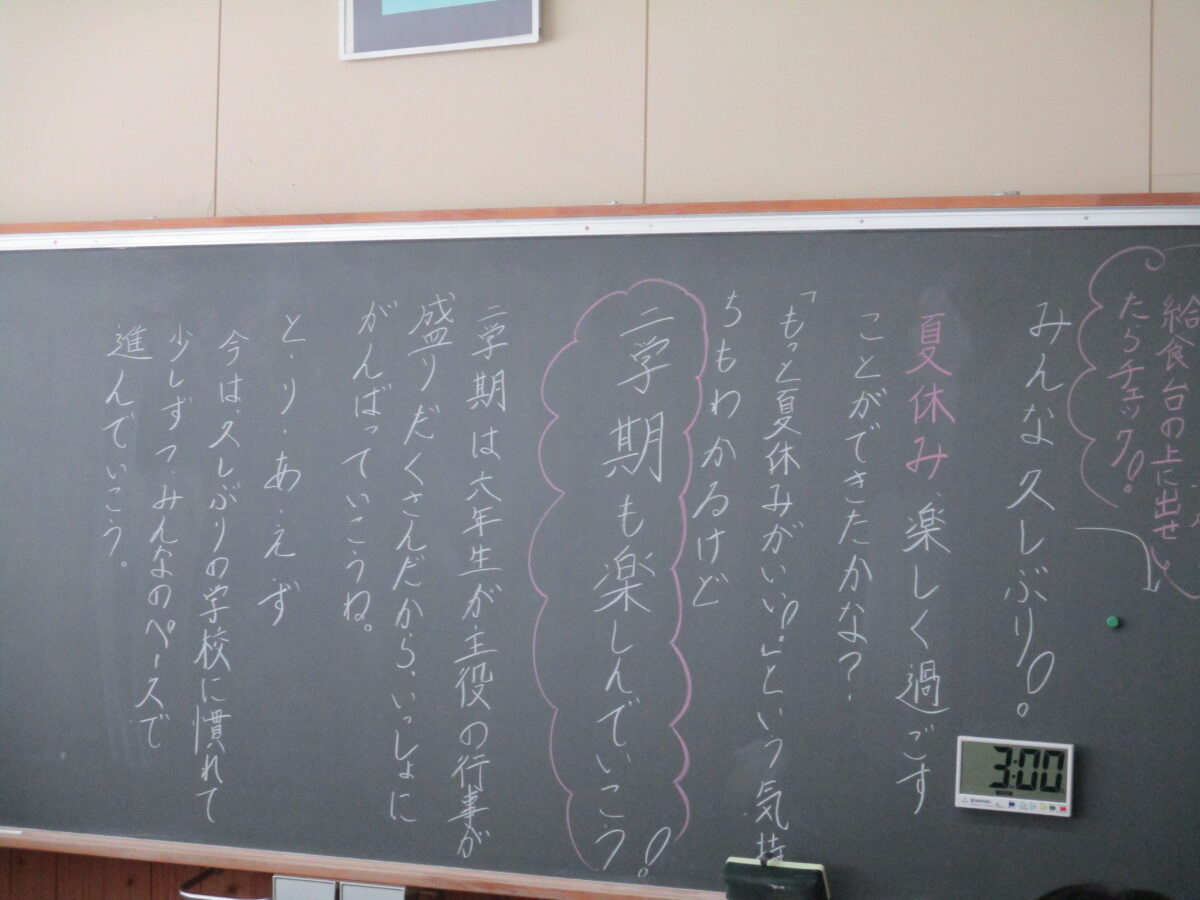 給食台の上に出せ
たらチェック!
みんな久しぶり!
夏休み、楽しく過ごす
ことができたかな?
「もっと夏休みがいい!」という気持
ちもわかるけど
二学期も楽しんでいこう!
二学期は六年生が主役の行事が
盛りだくさんだから、いっしょに
がんばっていこうね。
と・り・あ・え・ず
今は、久しぶりの学校に慣れて
少しずつ、みんなのペースで
進んでいこう。
3:00